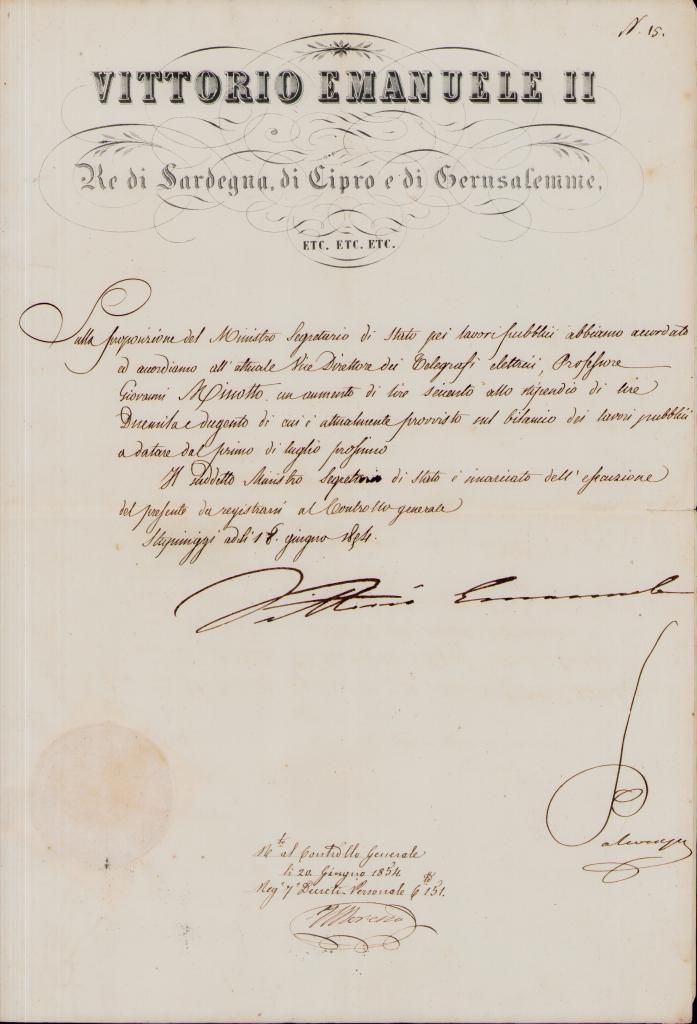 N. 15.
VITTORIO EMANUELE II
Re di Sardegna, di Cipro e di Gerusalemme,
ETC. ETC. ETC.
Sulla proposizione del Ministro Segretario di Stato pei lavori pubblici abbiamo accordato
ed accordiamo all'attuale Vice Direttore dei Telegrafi elettrici, Professore
Giovanni Minotto, un aumento di lire seicento allo stipendio di lire
Duemila e dugento di cui è attualmente provvisto sul bilancio dei lavori pubblici
a datare dal primo di luglio prossimo
Il suddetto Ministro Segretario di Stato è incaricato dell'esecuzione
del presente da registrarsi al Controllo generale
Stupiniggi addì 18. giugno 1854.
Vittorio Emanuele
Paleocapa
al Controllo Generale
li 20 Giugno 1854
Reg.° 7° Decreti Personale 151.